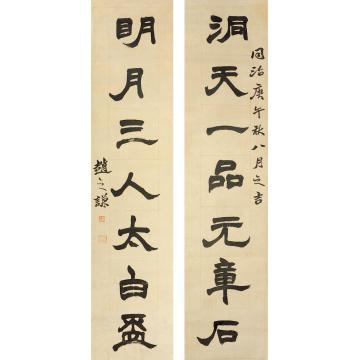 洞天一品元章石
同治庚午秋八月之吉
明月三人太白盃
趙之謙